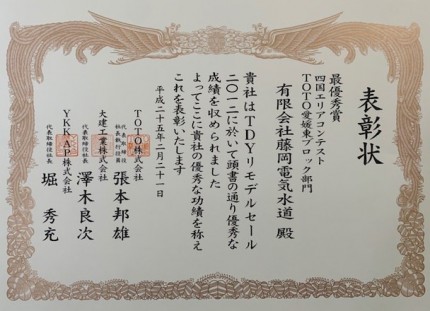 表彰状
最優秀賞
四国エリアコンテスト
TOTO愛媛東ブロック部門
有限会社藤岡電気水道 殿
貴社はTDYリモデルセール
二〇一二に於いて頭書の通り優秀な
成績を収められました
よってここに貴社の優秀な功績を称え
これを表彰いたします
平成二十五年二月二十一日
TOTO株式会社
代表取締役
社長執行役員 張本邦雄
大建工業株式会社
代表取締役社長 澤木良次
YKKAP株式会社
代表取締役社長 堀秀充